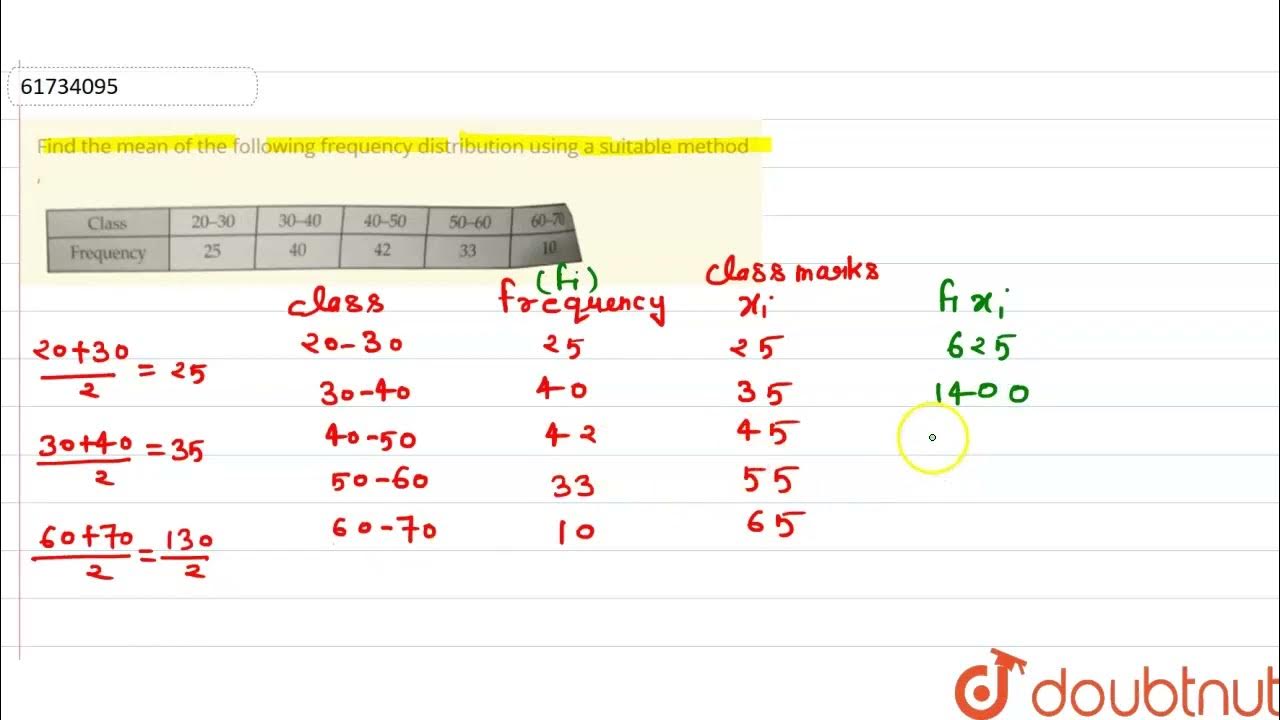 61734095
Find the mean of the following frequency distribution using a suitable method
,
Class 20–30 30–40 40–50 50–60 60–70
Frequency 25 40 42 33 10
(fi) class marks
class frequency xi fi xi
20+30/2 = 25 20-30 25 25 625
30-40 40 35 1400
30+40/2 = 35 40-50 42 45
50-60 33 55
60+70/2 = 130/2 60-70 10 65
doubtnut